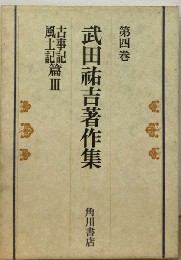 第四巻
武田祐吉著作集
古事記
風土記
篇Ⅲ
角川書店